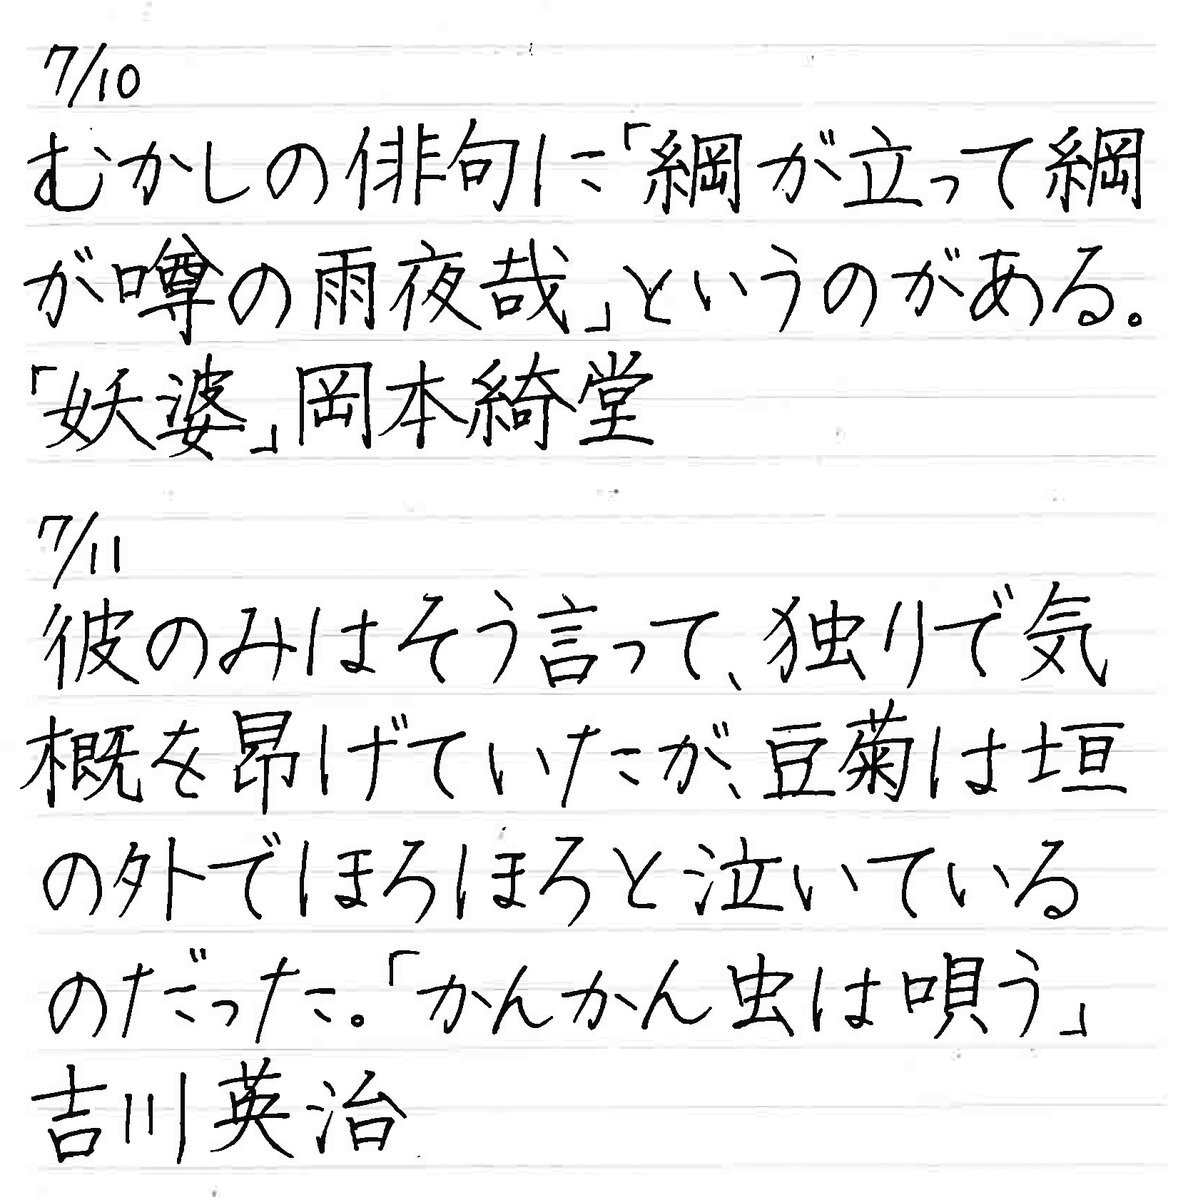 7/10
むかしの俳句に「綱が立って綱
が噂の雨夜哉」というのがある。
「妖婆」岡本綺堂
7/11
彼のみはそう言って、独りで気
概を昂げていたが、豆菊は垣
の外でほろほろと泣いている
のだった。「かんかん虫は唄う」
吉川英治